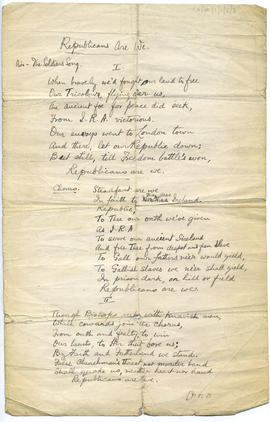 Republicans Are We.
Air - The Soldiers Song.
I
When bravely we'd fought our land to free
Our Tricolour flying o'er us,
An ancient foe for peace did seek,
From I.R.A. victorious.
Our envoys went to London town
And there, let our Republic down;
But still, till Freedom battle's won,
Republicans are we.
Chorus. Steadfast are we
In faith to Ireland.
Republic,
To Thee our oath we've given
As I.R.A.
To serve our ancient Sireland
And free Thee from despot and from slave
To Gall our fathers ne'er would yield,
To Gallish slaves we ne'er shall yield,
In prison dark, on hill or field
Republicans are we
II
Though Bishops with
While cowards join the Chorus,
From oath and fealty to win
Our hearts, to Him that bore us;
By Faith and Fatherland we stand.
threat nor murder band
Shall us, neither heart nor hand
Republicans are we.
P.T.O